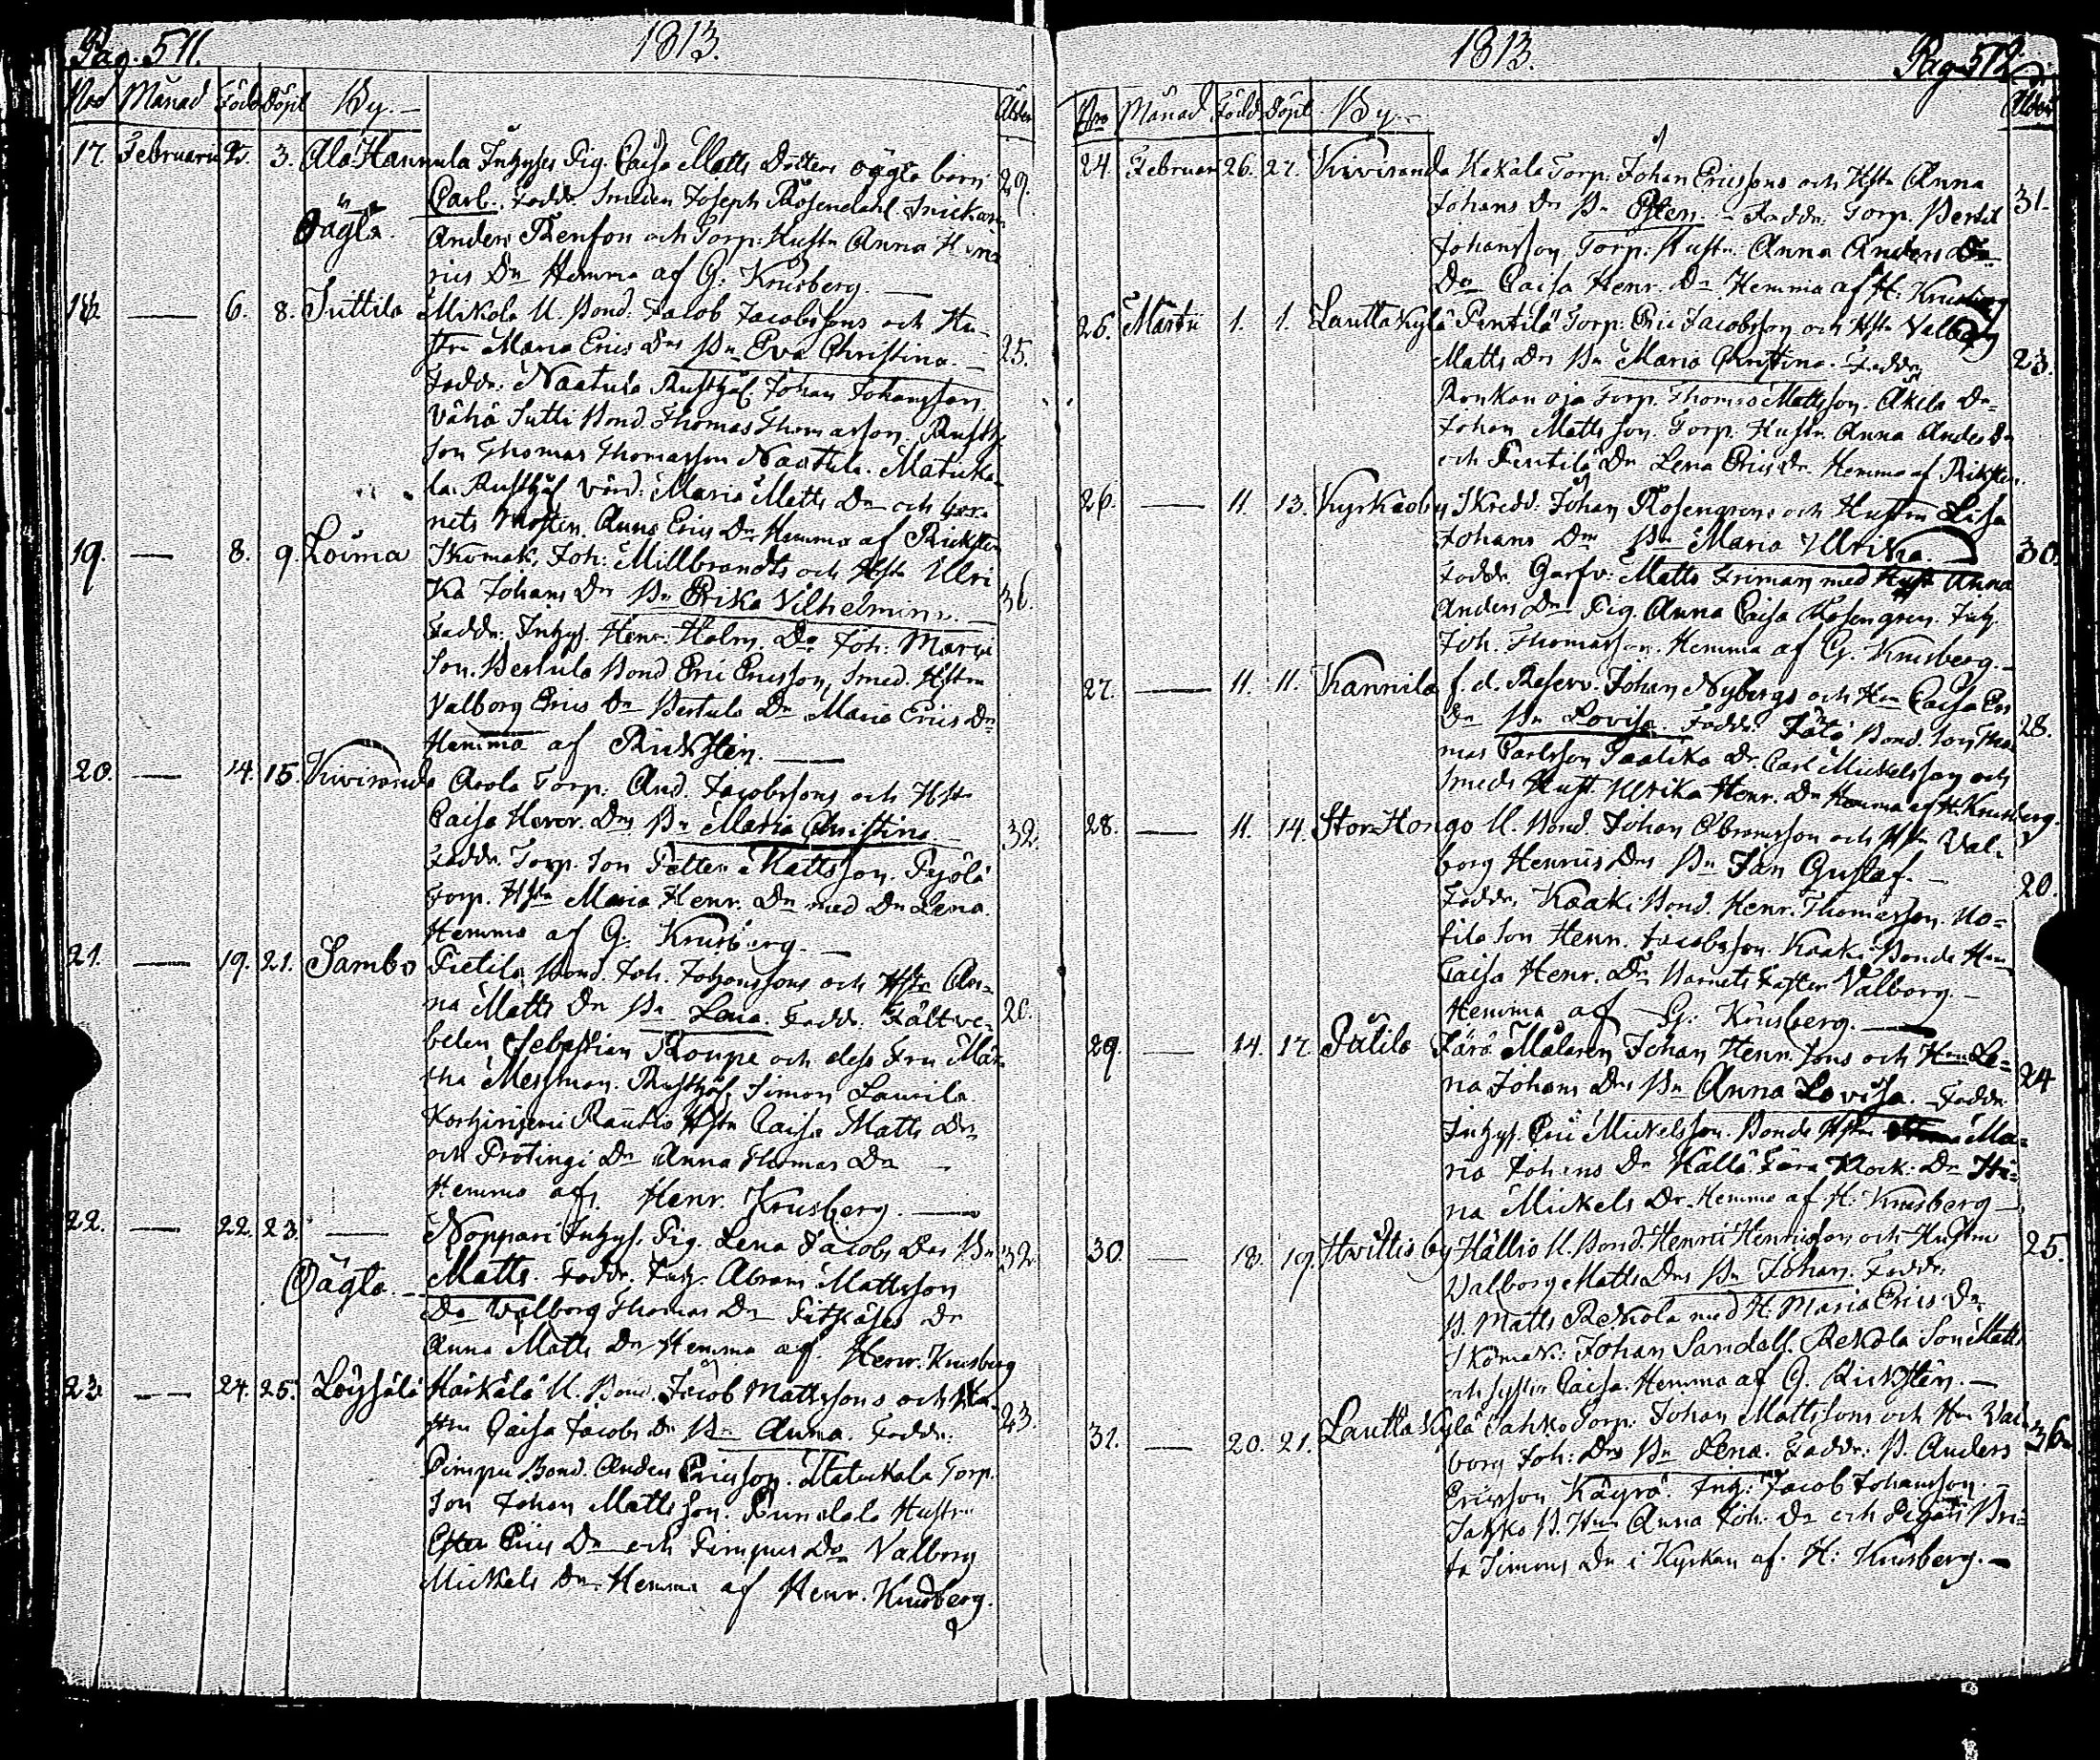 Pag. 511. 1813.
Nro Månad Född Döpt By. Ålder
17. Februarii 2. 3. Ala Hannula Inhyses Pig. Caisa Matts Dotters oägta barn 29.
Carl. Fadd. Smeden Joseph Rosendahl Snickaren
Oägta. Anders Renfors och Torp: Hustr. Anna Hen-
rics Dr Hemma af G: Krusberg.
18. — 6. 8. Suttila Mikola U. Bond. Jacob Jacobssons och Hu-
stru Maria Erics Drs Bn Eva Christina. 25.
Faddr: Naatula Rusthål. Johan Johansson
Vähä Sutti Bond. Thomas Thomasson. Rusth.
Son Thomas Thomasson Naatula. Matuka-
la Rusthål värd: Maria Matts Dr och bar-
nets Moster Anna Erics Dr Hemma af Rickstén
19. — 8. 9. Loima Skomak. Joh: Millbrandts och Hstr Ulri
ka Johans Drs Bn Erika Vilhelmina. 36.
Faddr: Inhys. Henr. Holm. Do Joh: Maria
Son. Bertula Bond Eric Ericsson, Smed. Hstru
Valborg Erics Dr Bertula Dr Maria Erics Dr
Hemma af Rickstén.
20. — 14. 15. Viviranda Arola Torp: And. Jacobssons och Hstr
Caisa Henr. Drs Bn Maria Christina. 32.
Faddr. Torp. Son Petter Mattsson. Pyölä
Torp. Hstr Maria Henr. Dr med Dr Lena.
Hemma af G. Krusberg.
21. — 19. 21. Sambo Pietila Bond. Joh. Johanssons och Hstr An-
na Matts Dr Bn Lena. Faddr: Fältve- 26.
belen Sebastian Roupe och dess Fru Mär-
tha Messman. Rusthål. Simon Laurila
Rautio Hstr Caisa Matts Dr
och Protingi Dr Anna Thomas Dr
Hemma af Henr. Krusberg.
22. — 22. 23. — Noppari Inhys. Pig. Lena Jacobs Drs Bn 32.
Oägta. Matts. Faddr. Inh. Abram Mattsson
Do Walborg Thomas Dr Dr
Anna Matts Dr Hemma af Henr. Krusberg
23. — 24. 25. Löysälä Haikälä U. Bond. Jacob Mattssons och Hu-
stru Caisa Jacobs Dr Bn Anna. Faddr: 23.
Pimpu Bond. Anders Ericsson. Matukala Torp.
Son Johan Mattsson. Hustru
Erics Dr och Pimpus Do Valborg
Mickels Dr Hemma af Henr. Krusberg.
1813. Pag. 512.
Nro Månad Född Döpt By. Ålder
24. Februar 26. 27. Viviranda Kakala Torp. Johan Ericssons och Hstr Anna
Johans Dr Bn Faddr: Torp. Bertil 31.
Johansson Torp: Hustr. Anna Anders Dr
Do Caisa Henr. Dr Hemma af H: Krusberg
25. Martii 1. 1. Lauttakylä Pentilä Torp: Eric Jacobsson och Hstr Valborg
Matts Drs Bn Maria Christina. Faddr 23.
Ronkan oja Torp. Thomas Mattsson. Äkila Do
Johan Mattsson. Torp. Hustr. Anna Anders Dr
och Pentilä Dr Lena Erics Dr Hemma af Rickstén.
26. — 11. 13. Kyrkaby Skredd: Johan Rosengrens och Hustru Lisa
Johans Drs Bn Maria Ulrika. 30.
Faddr. Garfv: Matts Friman med Hust. Anna
Anders Dr Pig. Anna Caisa Rosengren. Inh.
Joh. Thomasson. Hemma af G. Krusberg.
27. — 11. 11. Kannila f. d. Reserv. Johan Nybergs och Hru Caisa Er.
Dr Bn Lovisa. Faddr: Bond. Son Tho- 28.
mas Carlsson Paalika Dr. Carl Mickelsson och
Smeds Hust. Ulrika Henr. Dr Hemma af H. Krusberg.
28. — 11. 14. Stor Hongo U. Bond. Johan Abramsson och Hstr Val-
borg Henrics Drs Bn Jan Gustaf. 20.
Faddr. Kaaki Bond. Henr. Thomasson. No-
tila Son Henr. Jacobsson. Kaaki Bonde Hru
Caisa Henr. Dr Barnets Faster Valborg.
Hemma af G: Krusberg.
29. — 14. 17. Pälilo Färö Målaren Johan Henr.sons och Hru Le-
na Johans Drs Bn Anna Lovisa. Faddr 24
Inhys. Eric Mickelsson. Bonde Hstr Ma-
ria Johans Dr Källä Färö Klock: Dr Sti-
na Mickels Dr. Hemma af H: Krusberg
30. — 18. 19. Hvittisby Hällio U. Bond: Henric Henricsson och Hustru 25.
Valborg Matts Drs Bn Johan. Faddr.
B. Matts Rekola med H. Maria Erics Dr.
Skomak: Johan Sandell. Rekola Son Matts
och syster Caisa. Hemma af G. Rickstén.
31. — 20. 21. Lauttakylä Sahko Torp: Johan Mattssons och Hru Val-
borg Joh: Drs Bn Lena. Faddr: B. Anders 36.
Ericsson Käyrä. Inh: Jacob Johansson.
Sahko B. Hru Anna Joh. Dr och Pigan Bri-
ta Simons Dr i Kyrkan af H: Krusberg.